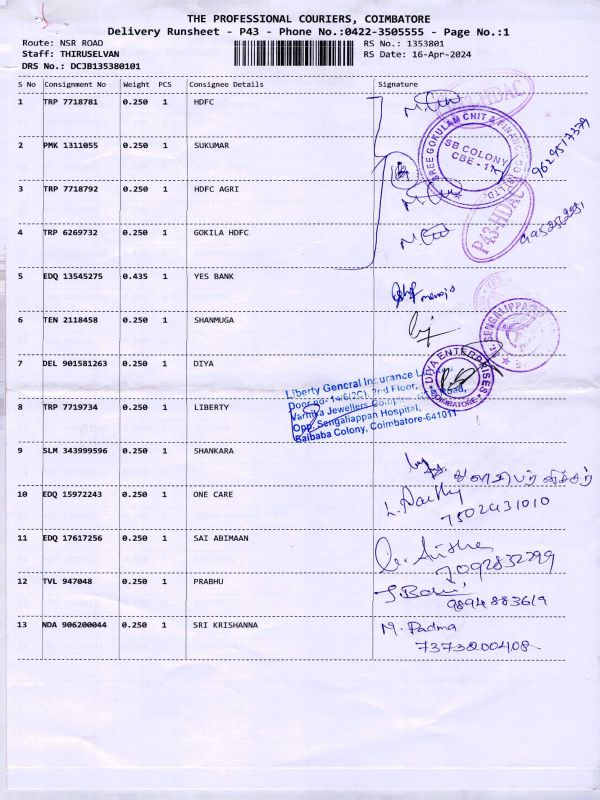 THE PROFESSIONAL COURIERS, COIMBATORE
Delivery Runsheet - P43 - Phone No.:0422-3505555 - Page No.:1
Route: NSR ROAD
RS No.: 1353801
Staff: THIRUSELVAN
RS Date: 16-Apr-2024
DRS No.: DCJB135380101
S No Consignment No Weight PCS Consignee Details Signature
1 TRP 7718781 0.250 1 HDFC
2 PMK 1311055 0.250 1 SUKUMAR
SREE GOKULAM CHIT & FINANCE CO.
SB COLONY
CBE - 11
3 TRP 7718792 0.250 1 HDFC AGRI
P43-HDAC
4 TRP 6269732 0.250 1 GOKILA HDFC
5 EDQ 13545275 0.435 1 YES BANK
manoj
6 TEN 2118458 0.250 1 SHANMUGA
7 DEL 901581263 0.250 1 DIYA
DIYA ENTERPRISES
COIMBATORE
Liberty General Insurance
Door no- 14/6(2C), 2nd Floor, Road,
Varthika Jewellers Complex
Opp. Sengaliappan Hospital,
Saibaba Colony, Coimbatore-641011
8 TRP 7719734 0.250 1 LIBERTY
9 SLM 343999596 0.250 1 SHANKARA
10 EDQ 15972243 0.250 1 ONE CARE
7502431010
11 EDQ 17617256 0.250 1 SAI ABIMAAN
7092832799
12 TVL 947048 0.250 1 PRABHU
9894883619
13 NDA 906200044 0.250 1 SRI KRISHANNA M. Padma
7373200408